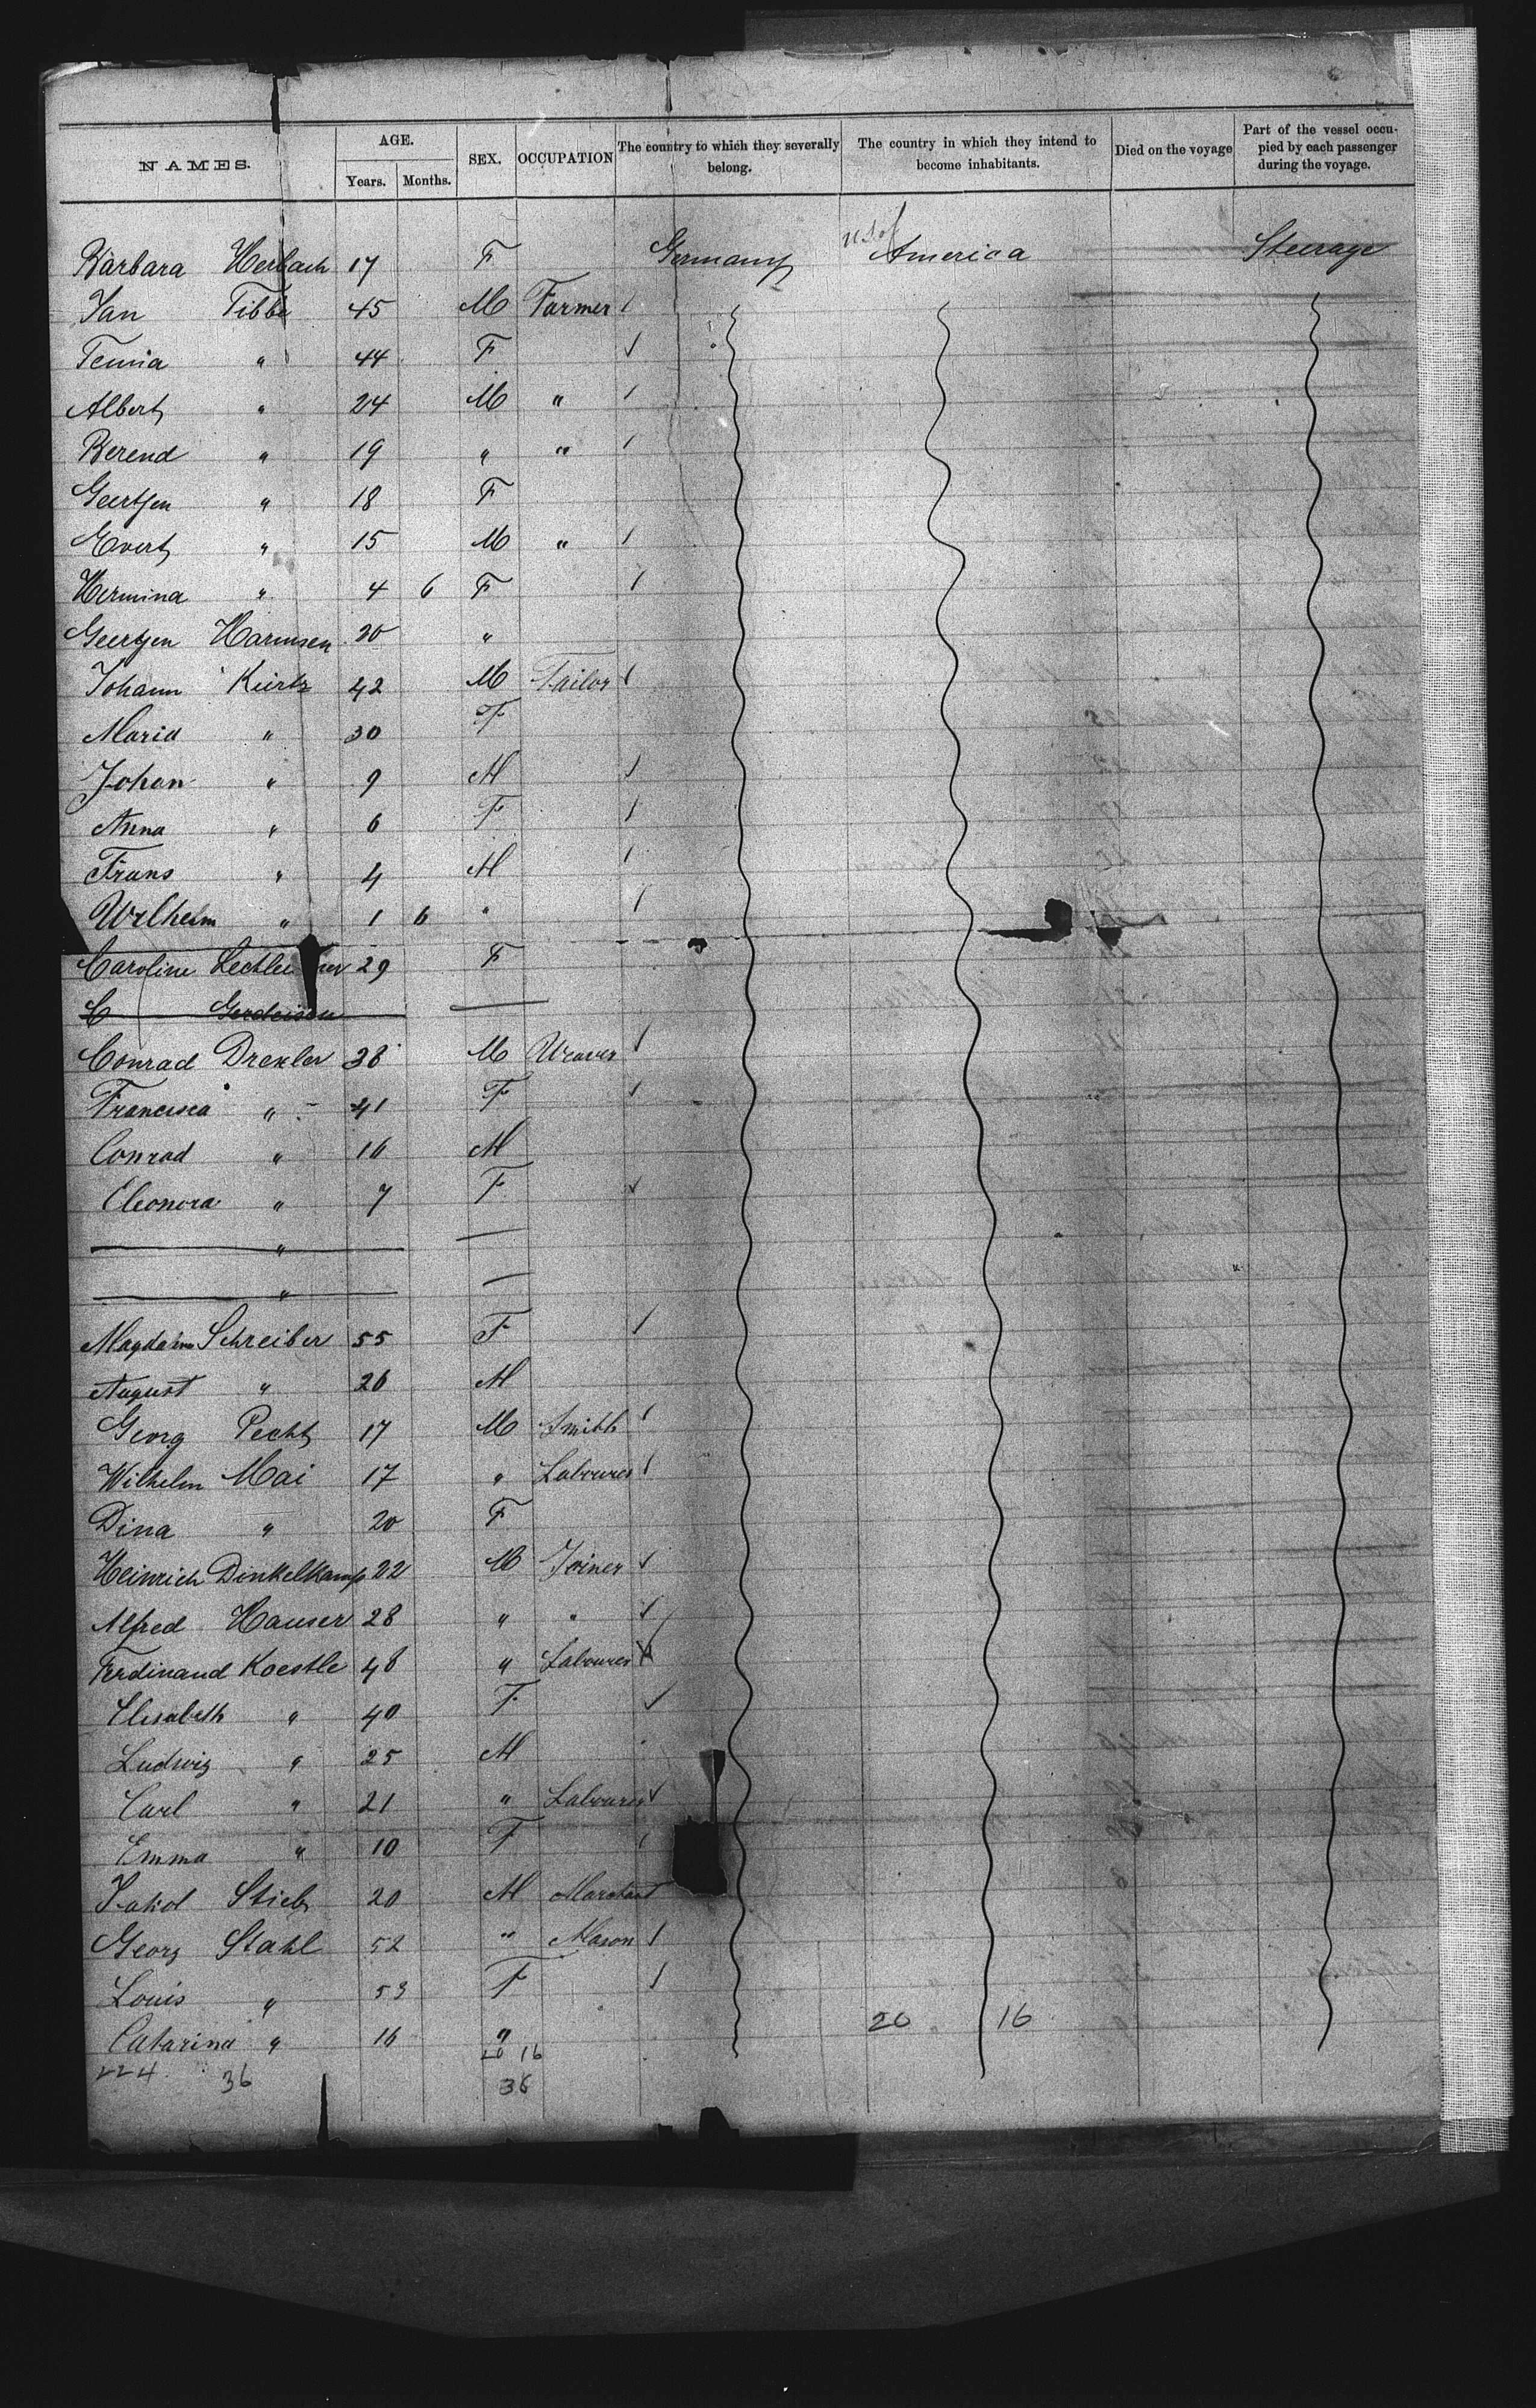 NAMES. AGE. Years. Months. SEX. OCCUPATION The country to which they severally belong. The country in which they intend to become inhabitants. Died on the voyage Part of the vessel occupied by each passenger during the voyage.
Barbara Herbach 17 F Germany U S of America Steerage
Jan Tibbe 45 M Farmer
Tennia " 44 F
Albert " 24 M "
Berend " 19 " "
Geertjen " 18 F
Evert " 15 M "
Hermina " 4 6 F
Geertjen Harmsen 20 "
Johann Kürtz 42 M Tailor
Maria " 30 F
Johan " 9 M
Anna " 6 F
Frans " 4 M
Wilhelm " 1 6 "
Caroline 29 F
C
Conrad Drexler 38 M Weaver
Francisca " 41 F
Conrad " 16 M
Eleonora " 7 F
"
"
Magdalena Schreiber 55 F
August " 26 M
Georg Pecht 17 M Smith
Wilhelm Mai 17 " Labourer
Dina " 20 F
Heinrich Dinkelkamp 22 M Joiner
Alfred Hauser 28 " "
Ferdinand Koestle 48 " Labourer
Elisabeth " 40 F
Ludwig " 25 M
Carl " 21 " Labourer
Emma " 10 F
Jakob Stieb 20 M
Georg Stahl 52 " Mason
Louis " 53 F
Catarina " 16 "
20 16
20 16
224 36 36